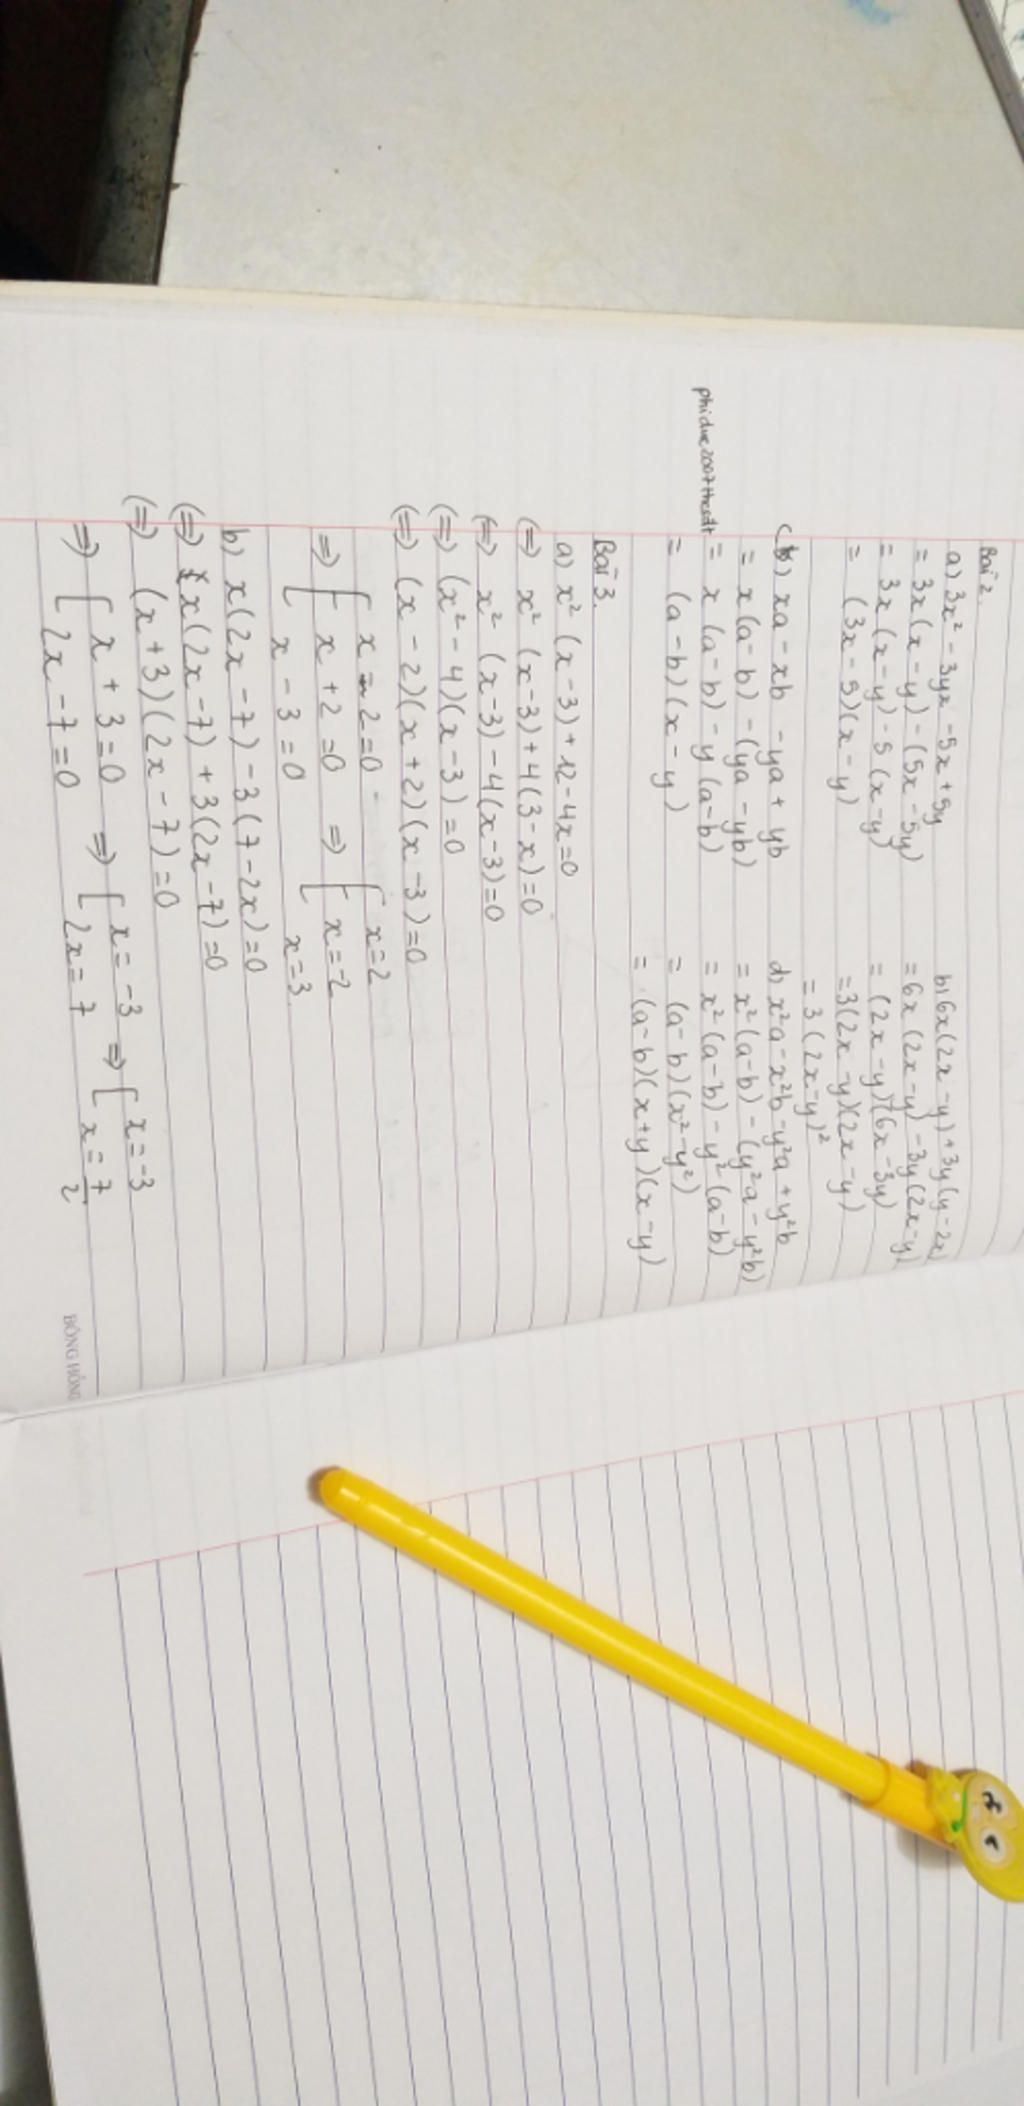 Bài 2.
a) 3x² - 3yx - 5x + 5y
= 3x(x - y) - (5x - 5y)
= 3x(x - y) - 5(x - y)
= (3x - 5)(x - y)
b) 6x(2x - y) + 3y(y - 2x)
= 6x(2x - y) - 3y(2x - y)
= (2x - y)(6x - 3y)
= 3(2x - y)(2x - y)
= 3(2x - y)²
c) xa - xb - ya + yb
= x(a - b) - (ya - yb)
= x(a - b) - y(a - b)
= (a - b)(x - y)
d) x²a - x²b - y²a + y²b
= x²(a - b) - (y²a - y²b)
= x²(a - b) - y²(a - b)
= (a - b)(x² - y²)
= (a - b)(x + y)(x - y)
Bài 3.
a) x²(x - 3) + 12 - 4x = 0
(=) x²(x - 3) + 4(3 - x) = 0
(=) x²(x - 3) - 4(x - 3) = 0
(=) (x² - 4)(x - 3) = 0
(=) (x - 2)(x + 2)(x - 3) = 0
x - 2 = 0 x = 2
=) x + 2 = 0 =) x = -2
x - 3 = 0 x = 3
b) x(2x - 7) - 3(7 - 2x) = 0
(=) x(2x - 7) + 3(2x - 7) = 0
(=) (x + 3)(2x - 7) = 0
=) x + 3 = 0 =) x = -3 =) x = -3
2x - 7 = 0 2x = 7 x = 7/2
ĐÔNG HỒNG